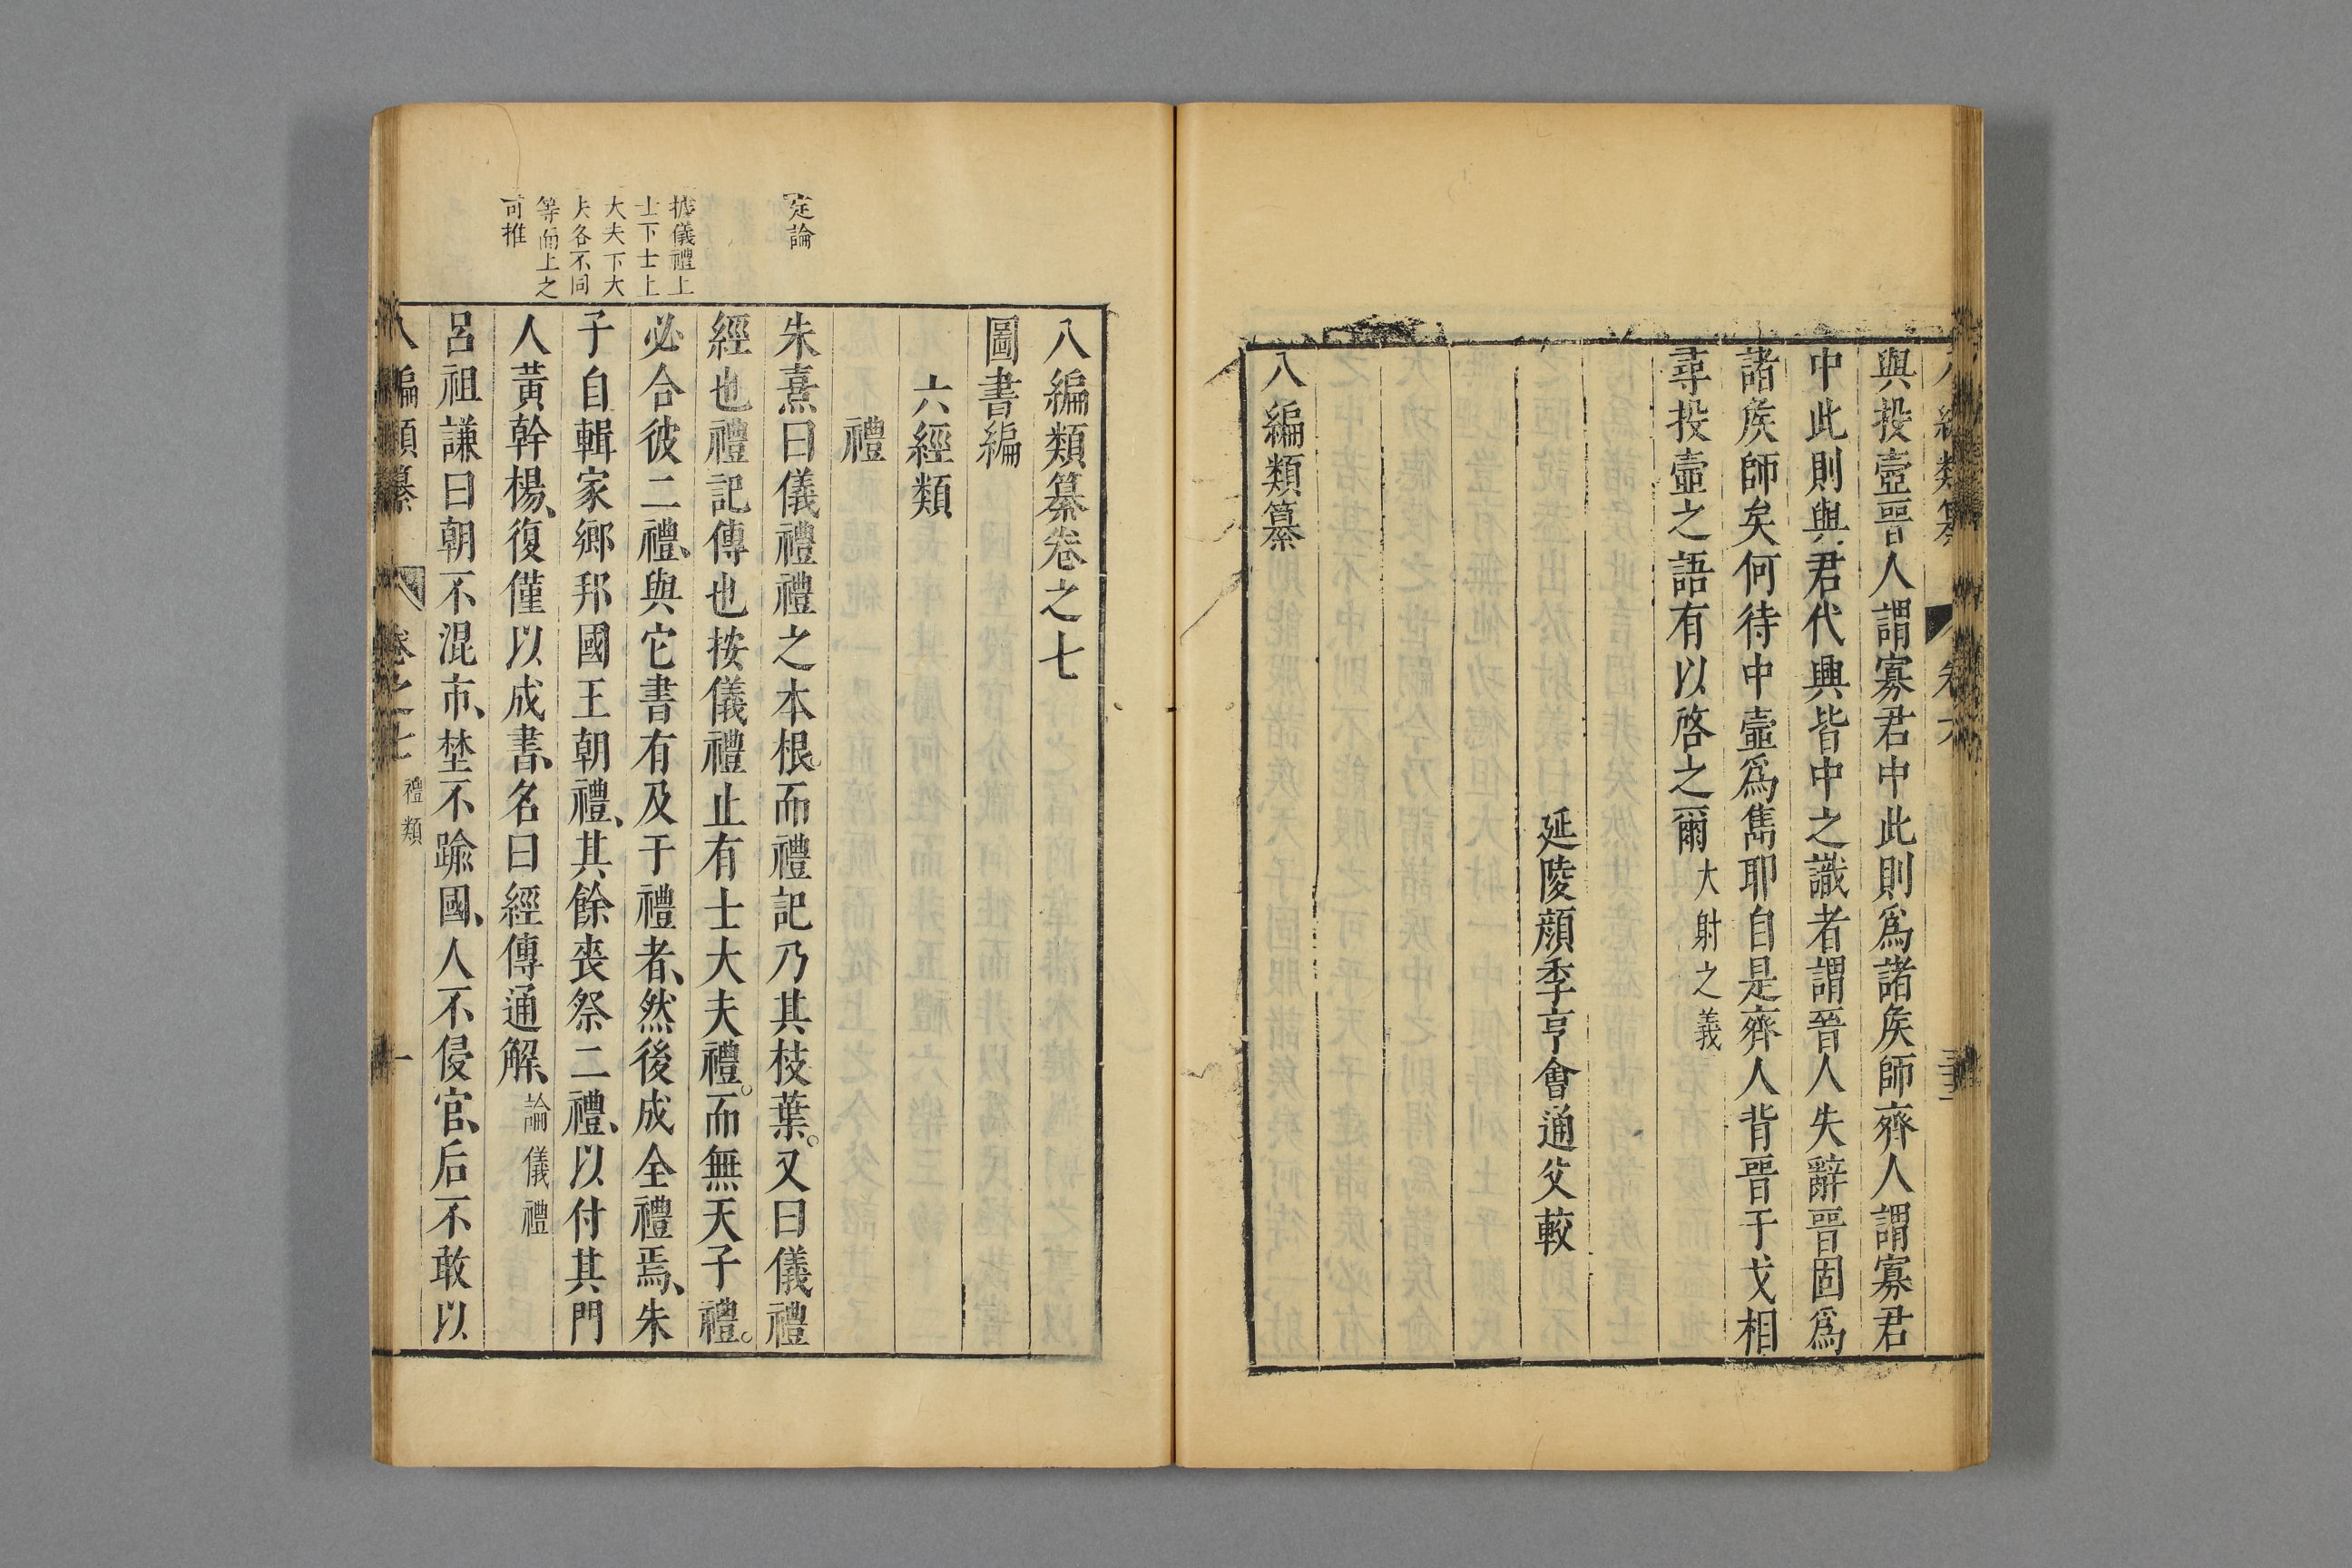 與投壺晉人謂寡君中此則爲諸矦師齊人謂寡君
中此則與君代興皆中之識者謂晉人失辭晉固爲
諸矦師矣何待中壺爲雋耶自是齊人背晉干戈相
尋投壺之語有以啓之爾大射之義
延陵顏季亨會通父較
八編類纂
八編類纂卷之七
圖書編
六經類
禮
定論
朱熹曰儀禮禮之本根而禮記乃其枝葉。又曰儀禮
經也禮記傳也按儀禮止有士大夫禮。而無天子禮。
據儀禮上
士下士上
大夫下大
夫各不同
等而上之
可推
必合彼二禮、與它書有及于禮者、然後成全禮焉、朱
子自輯家鄉邦國王朝禮、其餘喪祭二禮、以付其門
人黃幹楊、復僅以成書、名曰經傳通解、論儀禮
呂祖謙曰朝不混市、埜不踰國、人不侵官、后不敢以
八編類纂 卷之七 禮類 一